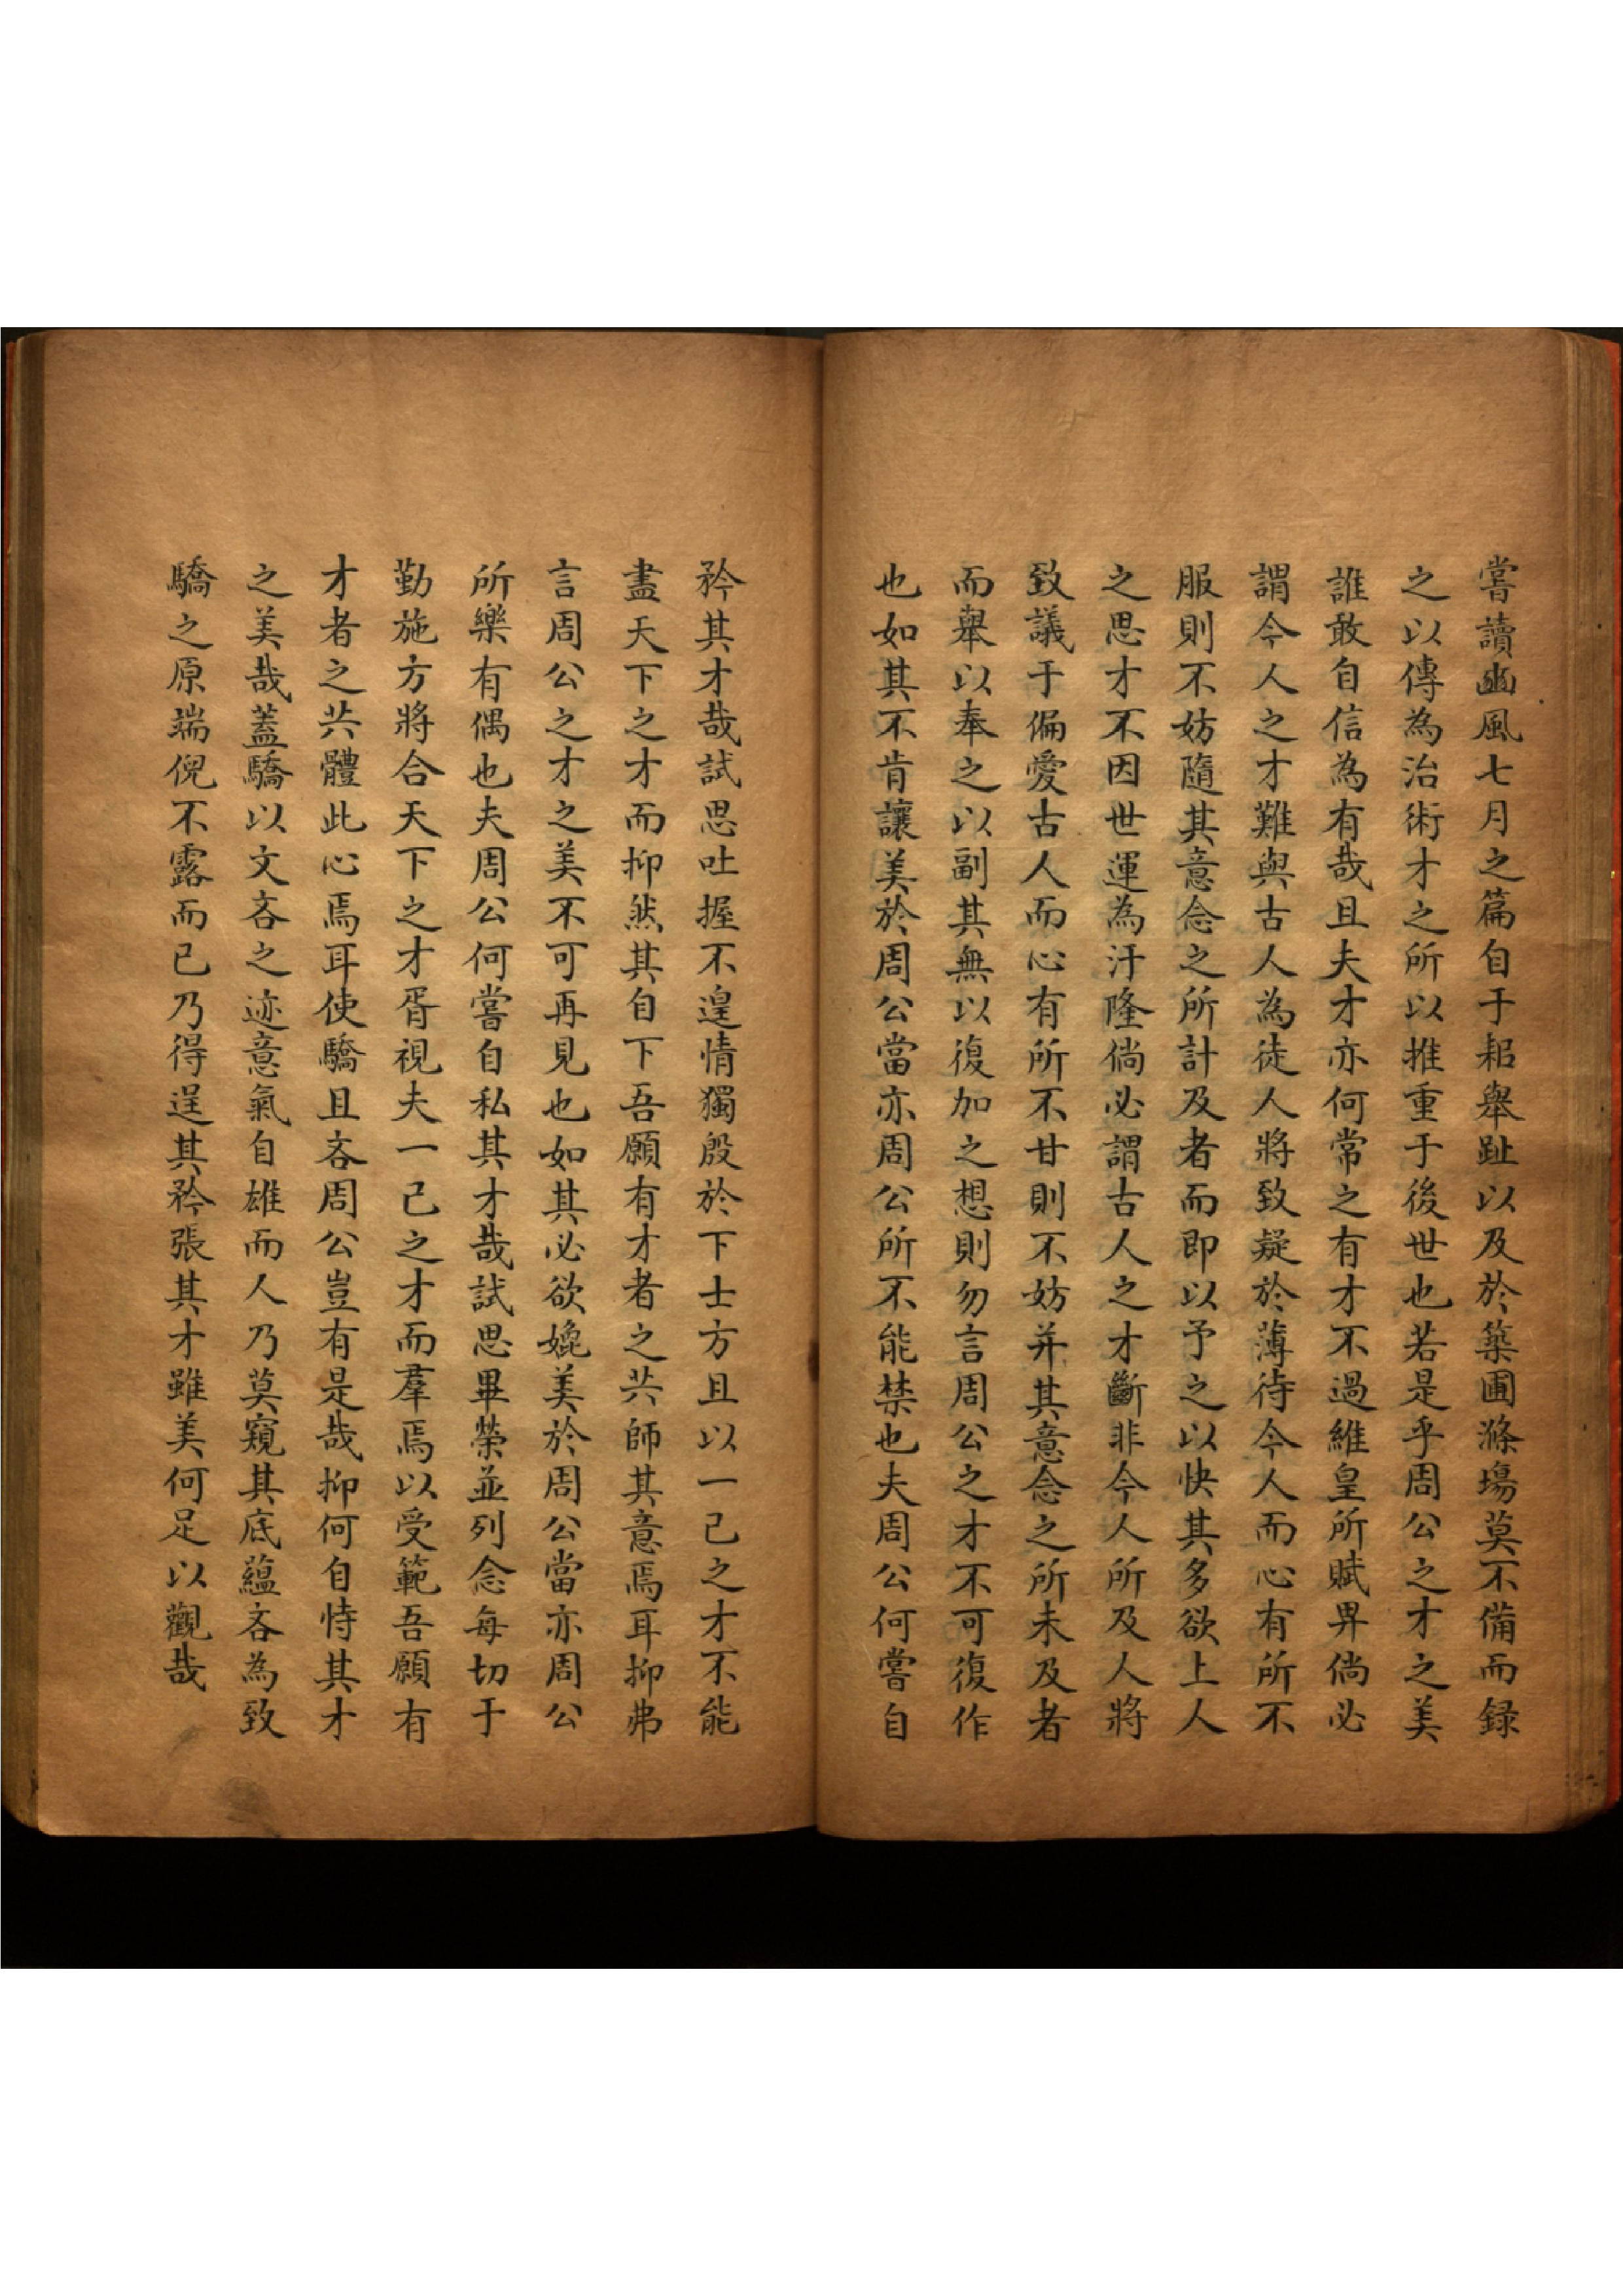 嘗讀豳風七月之篇自于耜舉趾以及於築圃滌場莫不備而録
之以傳為治術才之所以推重于後世也若是乎周公之才之美
誰敢自信為有哉且夫才亦何常之有才不過維皇所賦畀倘必
謂今人之才難與古人為徒人將致疑於薄待今人而心有所不
服則不妨隨其意念之所計及者而即以予之以快其多欲上人
之思才不因世運為汙隆倘必謂古人之才斷非今人所及人將
致議于偏愛古人而心有所不甘則不妨并其意念之所未及者
而舉以奉之以副其無以復加之想則勿言周公之才不可復作
也如其不肯讓美於周公當亦周公所不能禁也夫周公何嘗自
矜其才哉試思吐握不遑情獨殷於下士方且以一己之才不能
盡天下之才而抑然其自下吾願有才者之共師其意焉耳抑弗
言周公之才之美不可再見也如其必欲媲美於周公當亦周公
所樂有偶也夫周公何嘗自私其才哉試思畢榮並列念每切于
勤施方將合天下之才胥視夫一己之才而羣焉以受範吾願有
才者之共體此心焉耳使驕且吝周公豈有是哉抑何自恃其才
之美哉蓋驕以文吝之迹意氣自雄而人乃莫窺其底蘊吝為致
驕之原端倪不露而已乃得逞其矜張其才雖美何足以觀哉